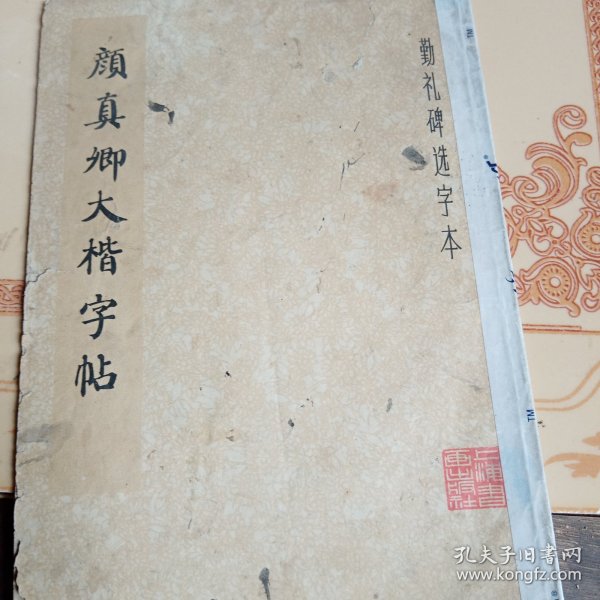 顔真卿大楷字帖
勤礼碑选字本
上海書
画出版社
TM
孔夫子旧书网
www.kongfz.com